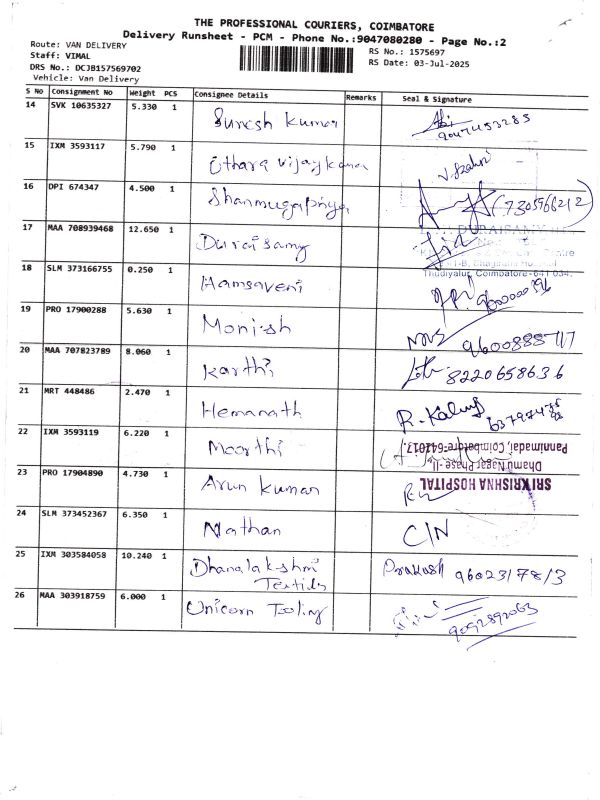 THE PROFESSIONAL COURIERS, COIMBATORE
Delivery Runsheet - PCM - Phone No.:9047080280 - Page No.:2
Route: VAN DELIVERY
RS No.: 1575697
Staff: VIMAL
RS Date: 03-Jul-2025
DRS No.: DCJB157569702
Vehicle: Van Delivery
S No Consignment No Weight PCS Consignee Details Remarks Seal & Signature
14 SVK 10635327 5.330 1 Suresh Kumar 9047453285
15 IXM 3593117 5.790 1 Uthara Vijaykumar
16 DPI 674347 4.500 1 Shanmugapriya (7305966212)
17 MAA 708939468 12.650 1 Duraisamy
Thudiyalur, Coimbatore-641 034.
18 SLM 373166755 0.250 1 Hamsaveni
19 PRO 17900288 5.630 1 Monish
20 MAA 707823789 8.060 1 Karthi 8220658636
21 MRT 448486 2.470 1 Hemanath
22 IXM 3593119 6.220 1 Moorthi
Pannimadai, Coimbatore-641017
Dhamu Nagar Phase-II
SRI KRISHNA HOSPITAL
23 PRO 17904890 4.730 1 Arun Kumar
24 SLM 373452367 6.350 1 Nathan C/N
25 IXM 303584058 10.240 1 Dhanalakshmi Prakash
26 MAA 303918759 6.000 1 Unicorn Tooling 9092892063